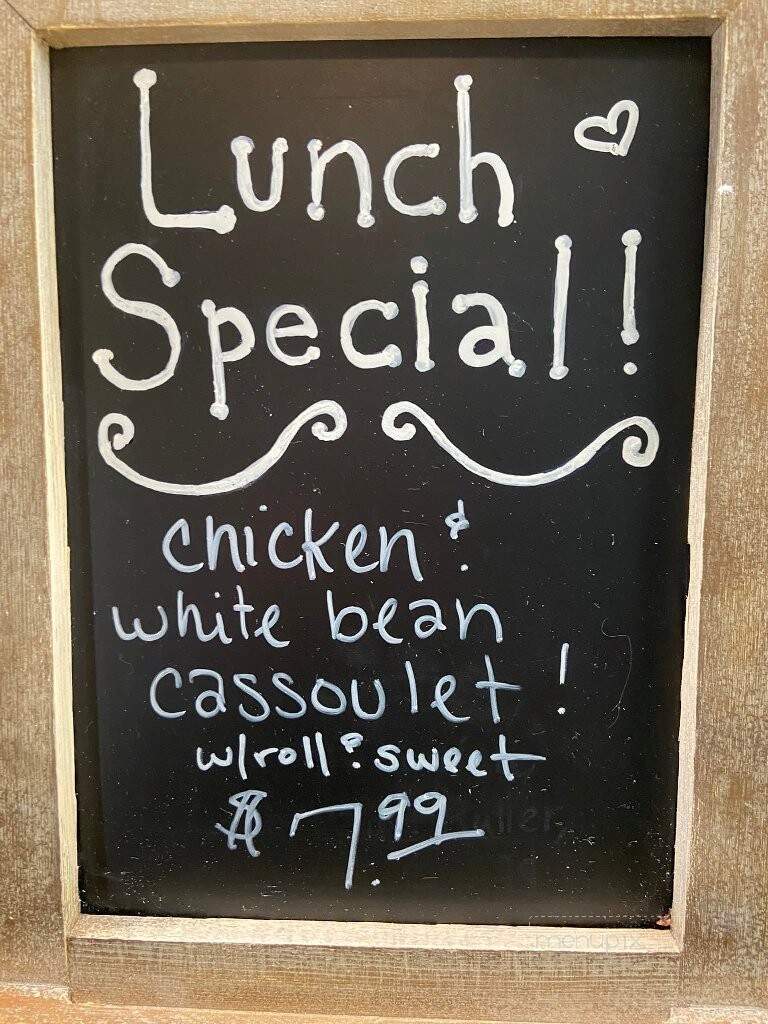 Lunch
Special!
chicken &
white bean
cassoulet !
w/roll & sweet
$7.99
menupix